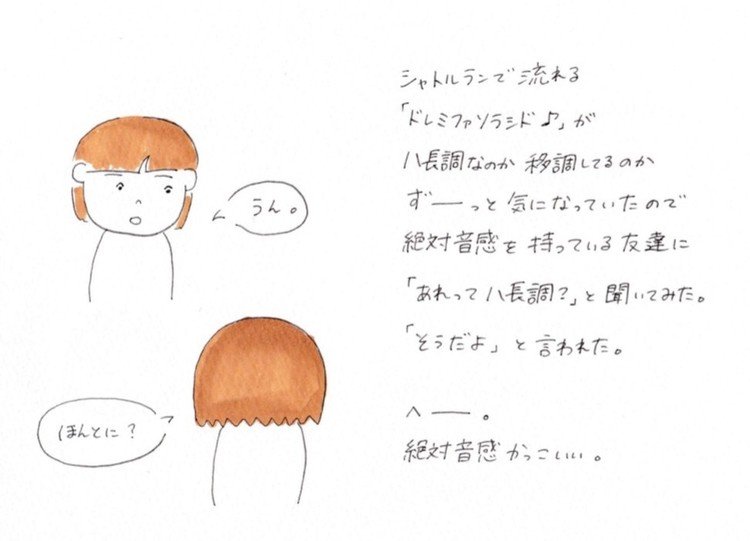 シャトルランで流れる
「ドレミファソラシド♪」が
ハ長調なのか移調してるのか
ずーっと気になっていたので
絶対音感を持っている友達に
「あれってハ長調？」と聞いてみた。
「そうだよ」と言われた。
へー。
絶対音感かっこいい。
うん。
ほんとに？